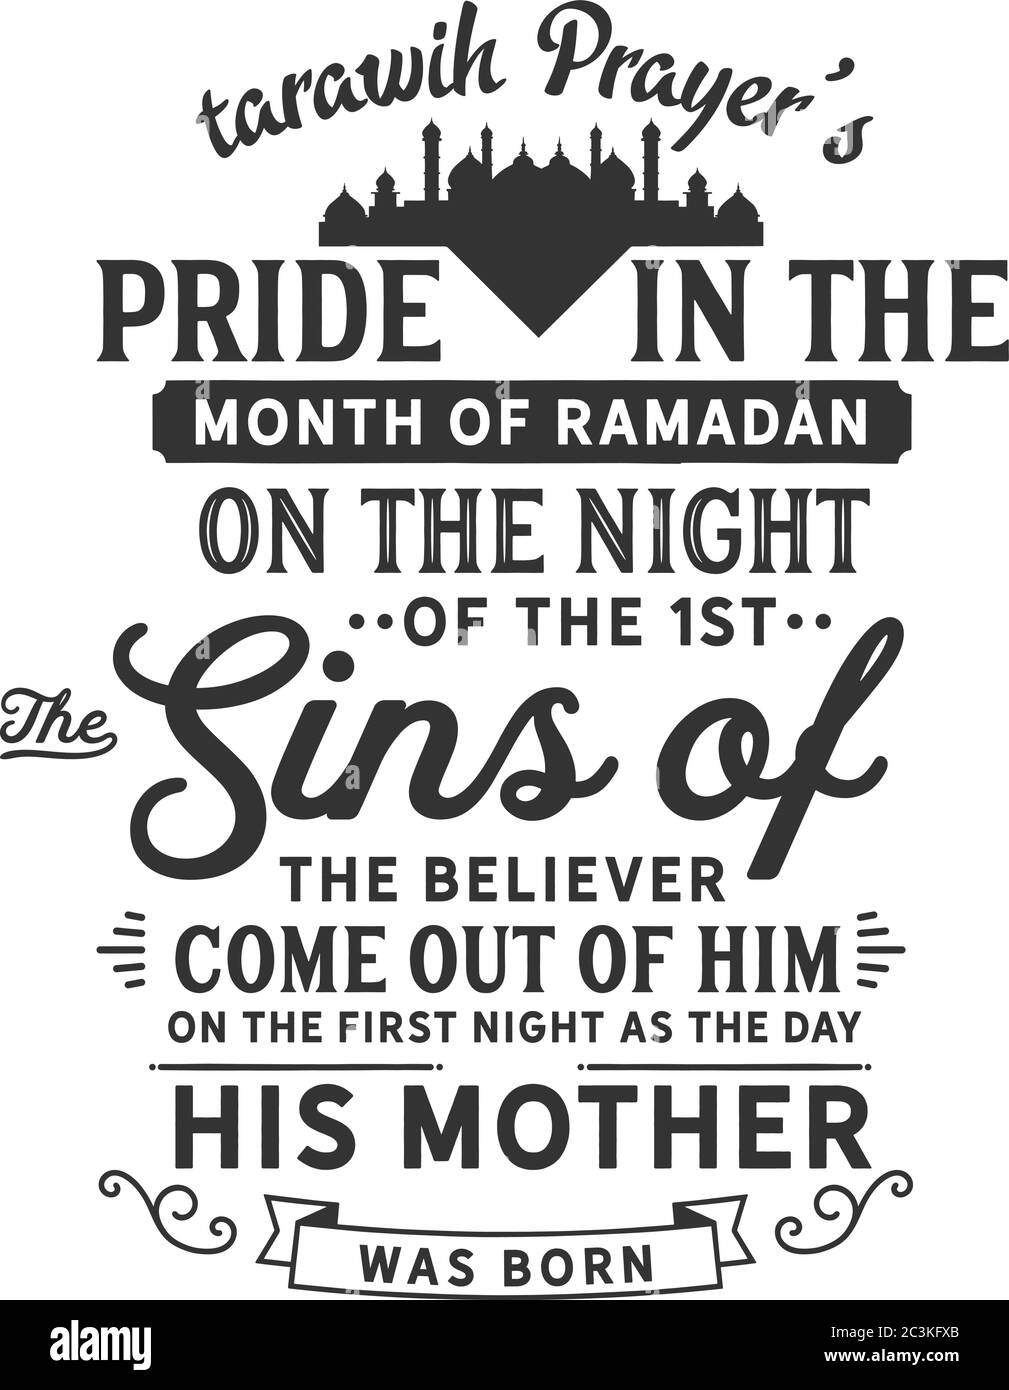 tarawih Prayer's
PRIDE IN THE
MONTH OF RAMADAN
ON THE NIGHT
OF THE 1ST
The Sins of
THE BELIEVER
COME OUT OF HIM
ON THE FIRST NIGHT AS THE DAY
HIS MOTHER
WAS BORN
alamy
Image ID: 2C3KFXB
www.alamy.com